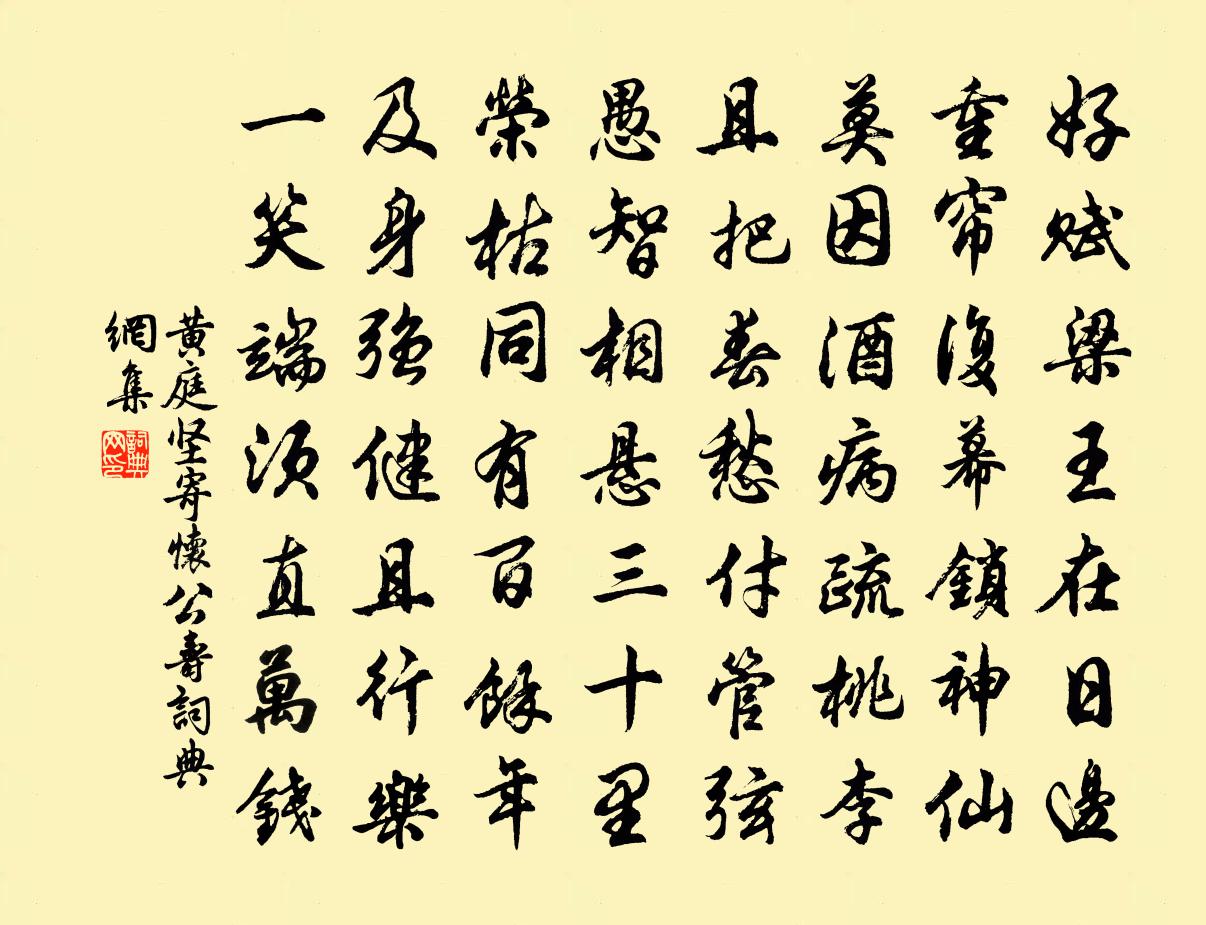 好赋梁王在日邊
重帘復幕鎖神仙
莫因酒病疏桃李
且把春愁付管弦
愚智相懸三十里
榮枯同有百餘年
及身强健且行樂
一笑端須直萬錢
黃庭坚寄懷公壽詞典
網集
詞典
网印